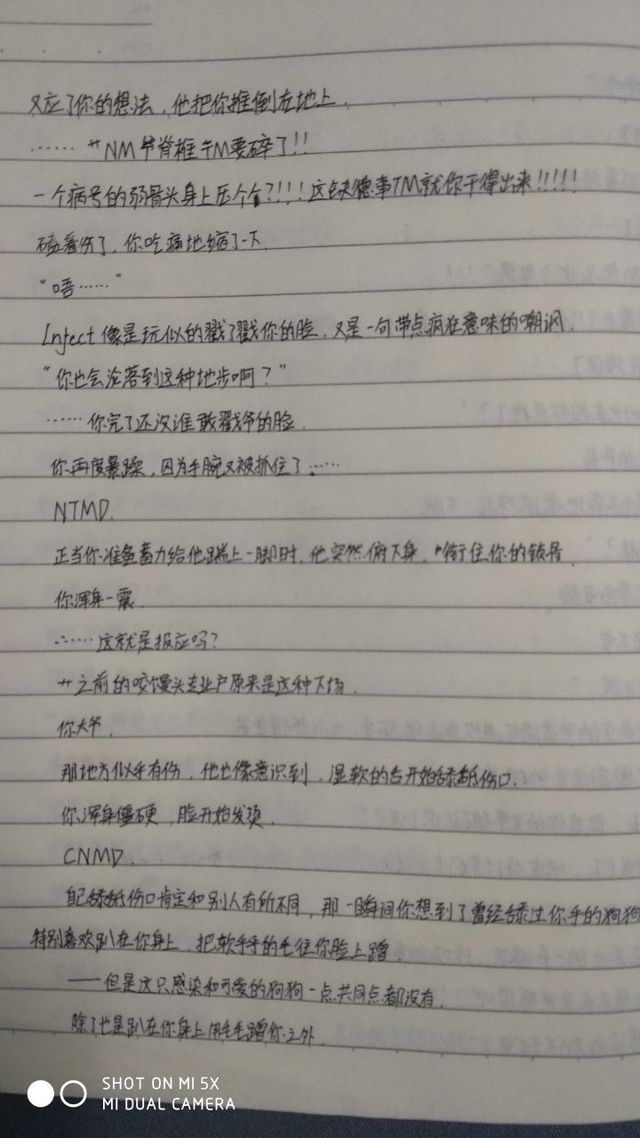 又应了你的想法，他把你推倒在地上。
……艹NM爷脊椎TM要碎了!!
一个病号的弱骨头身上压个 ?!!! 这缺德事TM就你干得出来!!!!!
磕着伤了，你吃痛地缩了下
“唔……”
Infect像是玩似的戳了戳你的脸，又是一句带点疯狂意味的嘲讽。
“你也会沦落到这种地步啊？”
……你完了还没谁敢戳爷的脸。
你再度暴躁，因为手腕又被抓住了……
NTMD.
正当你准备蓄力给他踹上一脚时，他突然俯下身，衔住你的锁骨。
你浑身一震。
……这就是报应吗?
艹之前的咬馒头专业户原来是这种下场。
你大爷。
那地方似乎有伤，他也像意识到，湿软的舌开始舔舐伤口。
你浑身僵硬，脸开始发烫。
CNMD.
自己舔舐伤口肯定和别人有所不同，那一瞬间你想到了曾经舔过你手的狗狗
特别喜欢趴在你身上，把软乎乎的毛往你脸上蹭。
——但是这只感染和可爱的狗狗一点共同点都没有。
除了也是趴在你身上用毛毛蹭你之外。
SHOT ON MI 5X
MI DUAL CAMERA